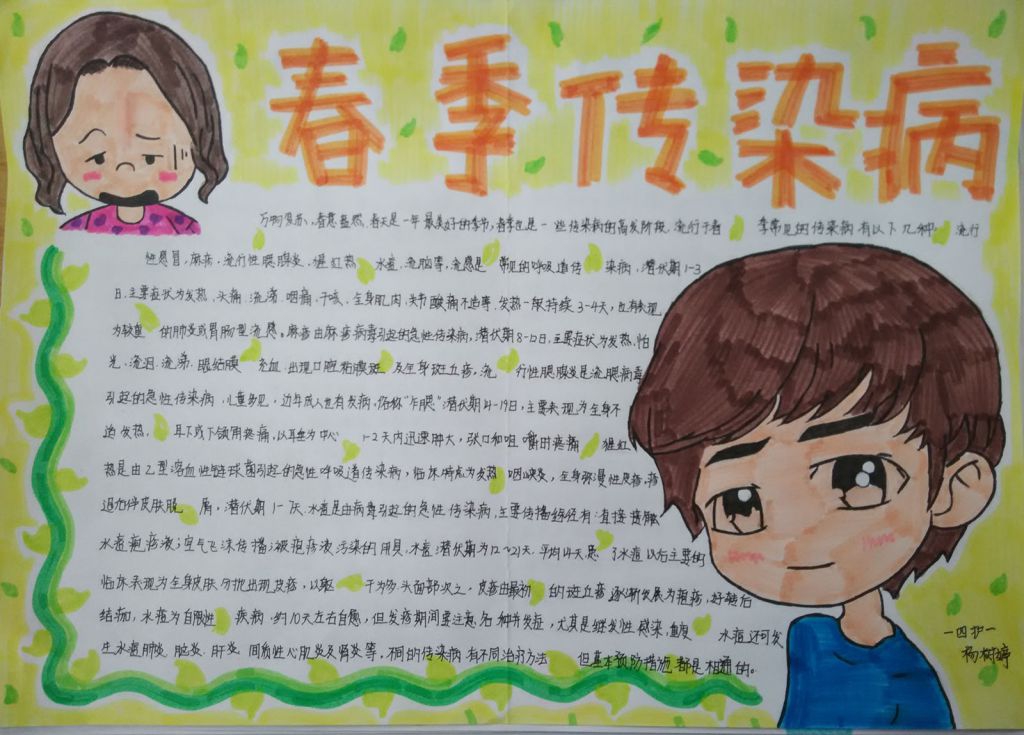 春季传染病
万物复苏、春意盎然,春天是一年最美好的季节,春季也是一些传染病的高发阶段,流行于春季常见的传染病有以下几种:流行
性感冒,麻疹,流行性腮腺炎,猩红热,水痘,流脑等,流感是常见的呼吸道传染病,潜伏期1-3
日,主要症状为发热、头痛、流涕、咽痛、干咳、全身肌肉、关节酸痛不适等,发热一般持续3-4天,也有表现
为较重的肺炎或胃肠型流感。麻疹由麻疹病毒引起的急性传染病,潜伏期8-12日,主要症状为发热、怕
光、流泪、流涕、眼结膜充血、出现口腔粘膜斑及全身斑丘疹,流行性腮腺炎是流腮病毒
引起的急性传染病,儿童多见,边年成人也有发病,俗称“乍腮”潜伏期14-19日,主要表现为全身不
适发热,耳下或下颌角疼痛,以耳垂为中心1-2天内迅速肿大,张口和咀嚼时疼痛,猩红
热是由乙型溶血性链球菌引起的急性呼吸道传染病,临床特点为发热咽峡炎,全身弥漫性皮疹,疹
退后伴皮肤脱屑,潜伏期1-7天,水痘是由病毒引起的急性传染病,主要传播途径有:直接接触
水痘疱疹液;空气飞沫传播;被疱疹液污染的用具,水痘潜伏期为12~21天,平均14天患了水痘以后主要的
临床表现为全身皮肤分批出现皮疹,以躯干为多头面部次之,皮疹由最初的斑丘疹逐渐发展为疱疹,好转后
结痂,水痘为自限性疾病,约10天左右自愈,但发疹期间要注意各种并发症,尤其是继发性感染,重度水痘还可发
生水痘肺炎、脑炎、肝炎、间质性心肌炎及肾炎等,不同的传染病有不同治疗方法但基本预防措施都是相通的。
一四护一
杨树婷